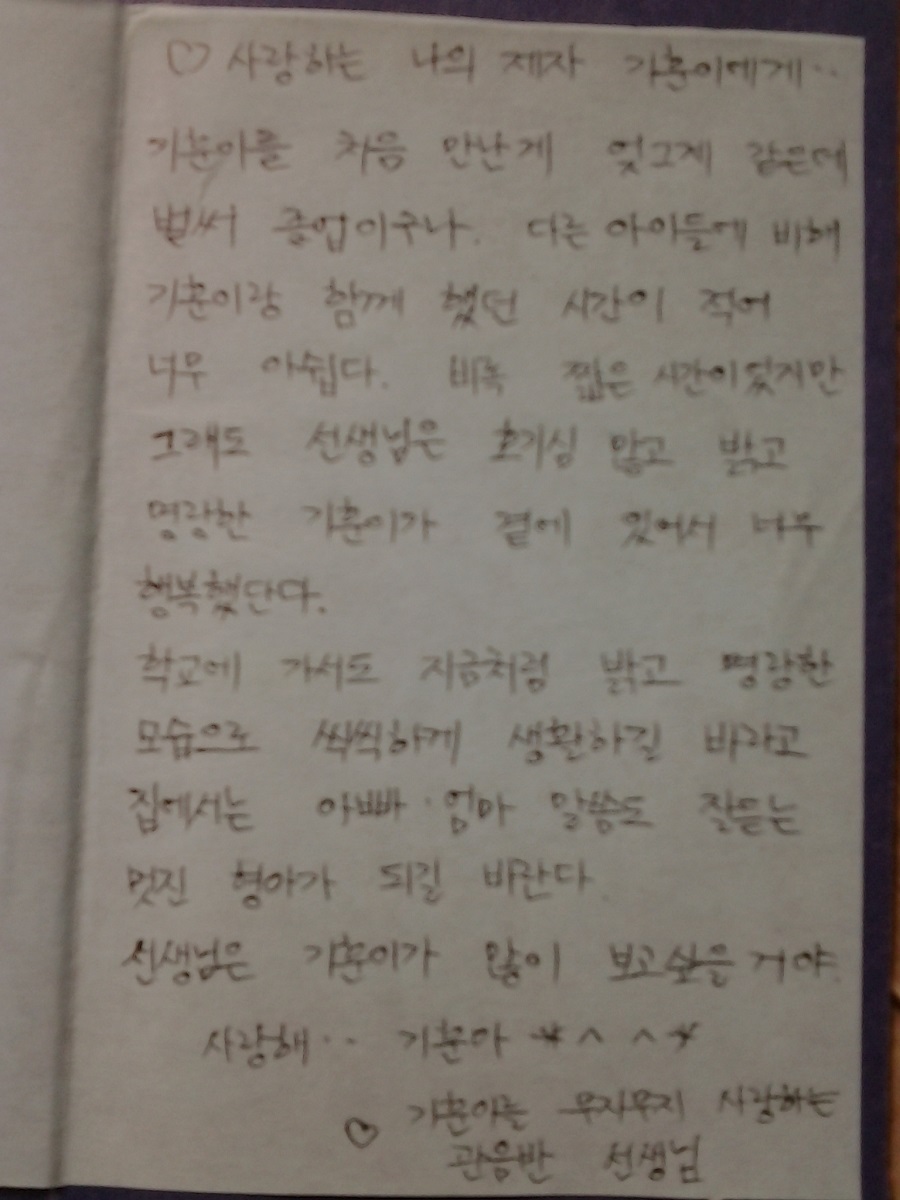 ♡ 사랑하는 나의 제자 기훈이에게..
기훈이를 처음 만난게 엇그제 같은데
벌써 졸업이구나. 다른 아이들에 비해
기훈이랑 함께 했던 시간이 적어
너무 아쉽다. 비록 짧은 시간이었지만
그래도 선생님은 호기심 많고 밝고
명랑한 기훈이가 곁에 있어서 너무
행복했단다.
학교에 가서도 지금처럼 밝고 명랑한
모습으로 씩씩하게 생활하길 바라고
집에서는 아빠·엄마 말씀도 잘듣는
멋진 형아가 되길 바란다.
선생님은 기훈이가 많이 보고싶을 거야.
사랑해.. 기훈아 *^ ^*
기훈이는 무지무지 사랑하는
♡ 관음반 선생님